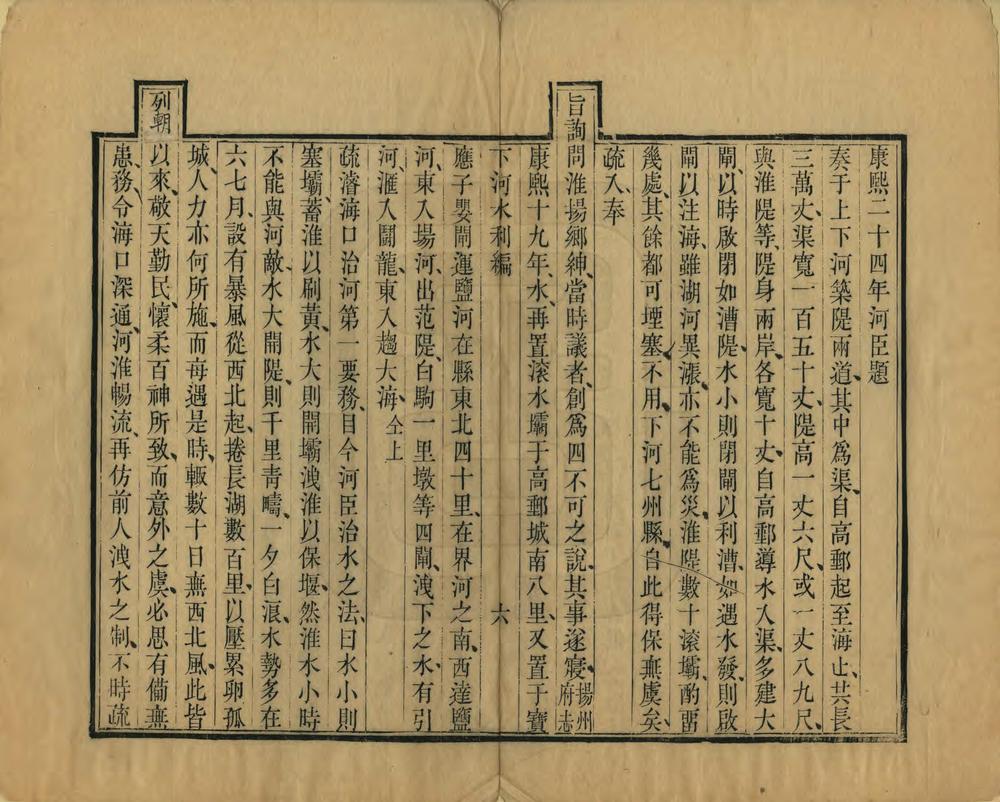 康熙二十四年河臣題
奏于上下河築隄兩道其中爲渠自高郵起至海止共長
三萬丈渠寬一百五十丈隄高一丈六尺或一丈八九尺
與淮隄等隄身兩岸各寬十丈自高郵導水入渠多建大
閘以時啟閉如漕隄水小則閉閘以利漕如遇水發則啟
閘以注海雖湖河異漲亦不能爲災淮隄數十滾壩酌畱
幾處其餘都可堙塞不用下河七州縣自此得保無虞矣
疏入奉
旨詢問淮揚鄉紳當時議者創爲四不可之說其事遂寢揚州府志
康熙十九年水再置滾水壩于高郵城南八里又置于寶
下河水利編 六
應子嬰閘運鹽河在縣東北四十里在界河之南西達鹽
河東入場河出范隄白駒一里墩等四閘洩下之水有引
河滙入鬬龍東入趨大海仝上
疏濬海口治河第一要務目今河臣治水之法曰水小則
塞壩蓄淮以刷黃水大則開壩洩淮以保堰然淮水小時
不能與河敵水大開隄則千里青疇一夕白浪水勢多在
六七月設有暴風從西北起捲長湖數百里以壓累卵孤
城人力亦何所施而每遇是時輙數十日無西北風此皆
列朝以來敬天勤民懷柔百神所致而意外之虞必思有備無
患務令海口深通河淮暢流再仿前人洩水之制不時疏